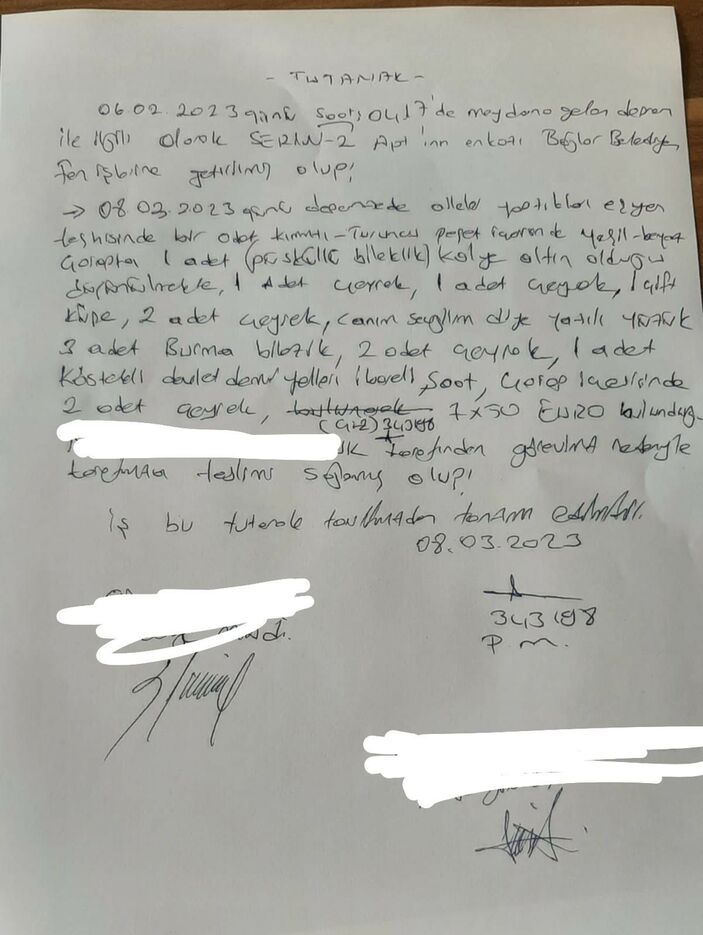 - TUTANAK -
06.02.2023 günü saat: 04.17'de meydana gelen deprem
ile ilgili olarak SERİN-2 Apt'ının enkazı Bağlar Belediye
fen işlerine getirilmiş olup;
→ 08.03.2023 günü depremzede aileler yaptıkları eşyan
teşhisinde bir adet kırmızı-Turuncu poşet içerisinde yeşil-beyaz
çorapta 1 adet (püsküllü bileklik) kolye altın olduğu
düşünülmekte, 1 Adet çeyrek, 1 adet çeyrek, 1 çift
küpe, 2 adet çeyrek, canım sevgilim diye yazılı YÜZÜK
3 adet Burma bilezik, 2 adet çeyrek, 1 adet
Köstekli devlet demir yolları ibareli, Saat, çorap içerisinde
2 adet çeyrek, 7x50 EURO
343198
tarafından görevlimiz nedeniyle
tarafımıza teslimi sağlanmış olup;
iş bu tutanak
08.03.2023
343198
P.M.